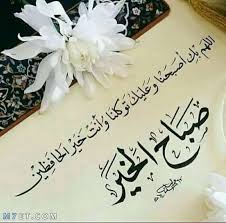 اللهم بك أصبحنا وعليك توكلنا وأنت خير الحافظين
صباح الخير
MYET.COM